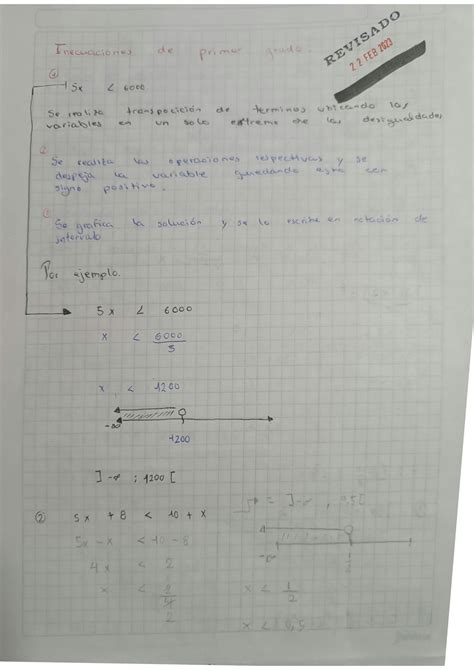 Inecuaciones de primer grado.
REVISADO
22 FEB 2023
①
5x < 6000
Se realiza transposición de terminos ubicando las
variables en un solo extremo de las desigualdades
②
Se realiza las operaciones respectivas y se
despeja la variable quedando esta con
signo positivo.
③
Se grafica la solución y se lo escribe en notación de
intervalo
Por ejemplo.
5x < 6000
x < 6000
5
x < 1200
-∞
1200
]-∞ ; 1200[
② 5x + 8 < 10 + x
= ]-∞ , 0,5[
5x - x < 10 - 8
4x < 2
-∞
1
2
x < 1
2
x < 0,5